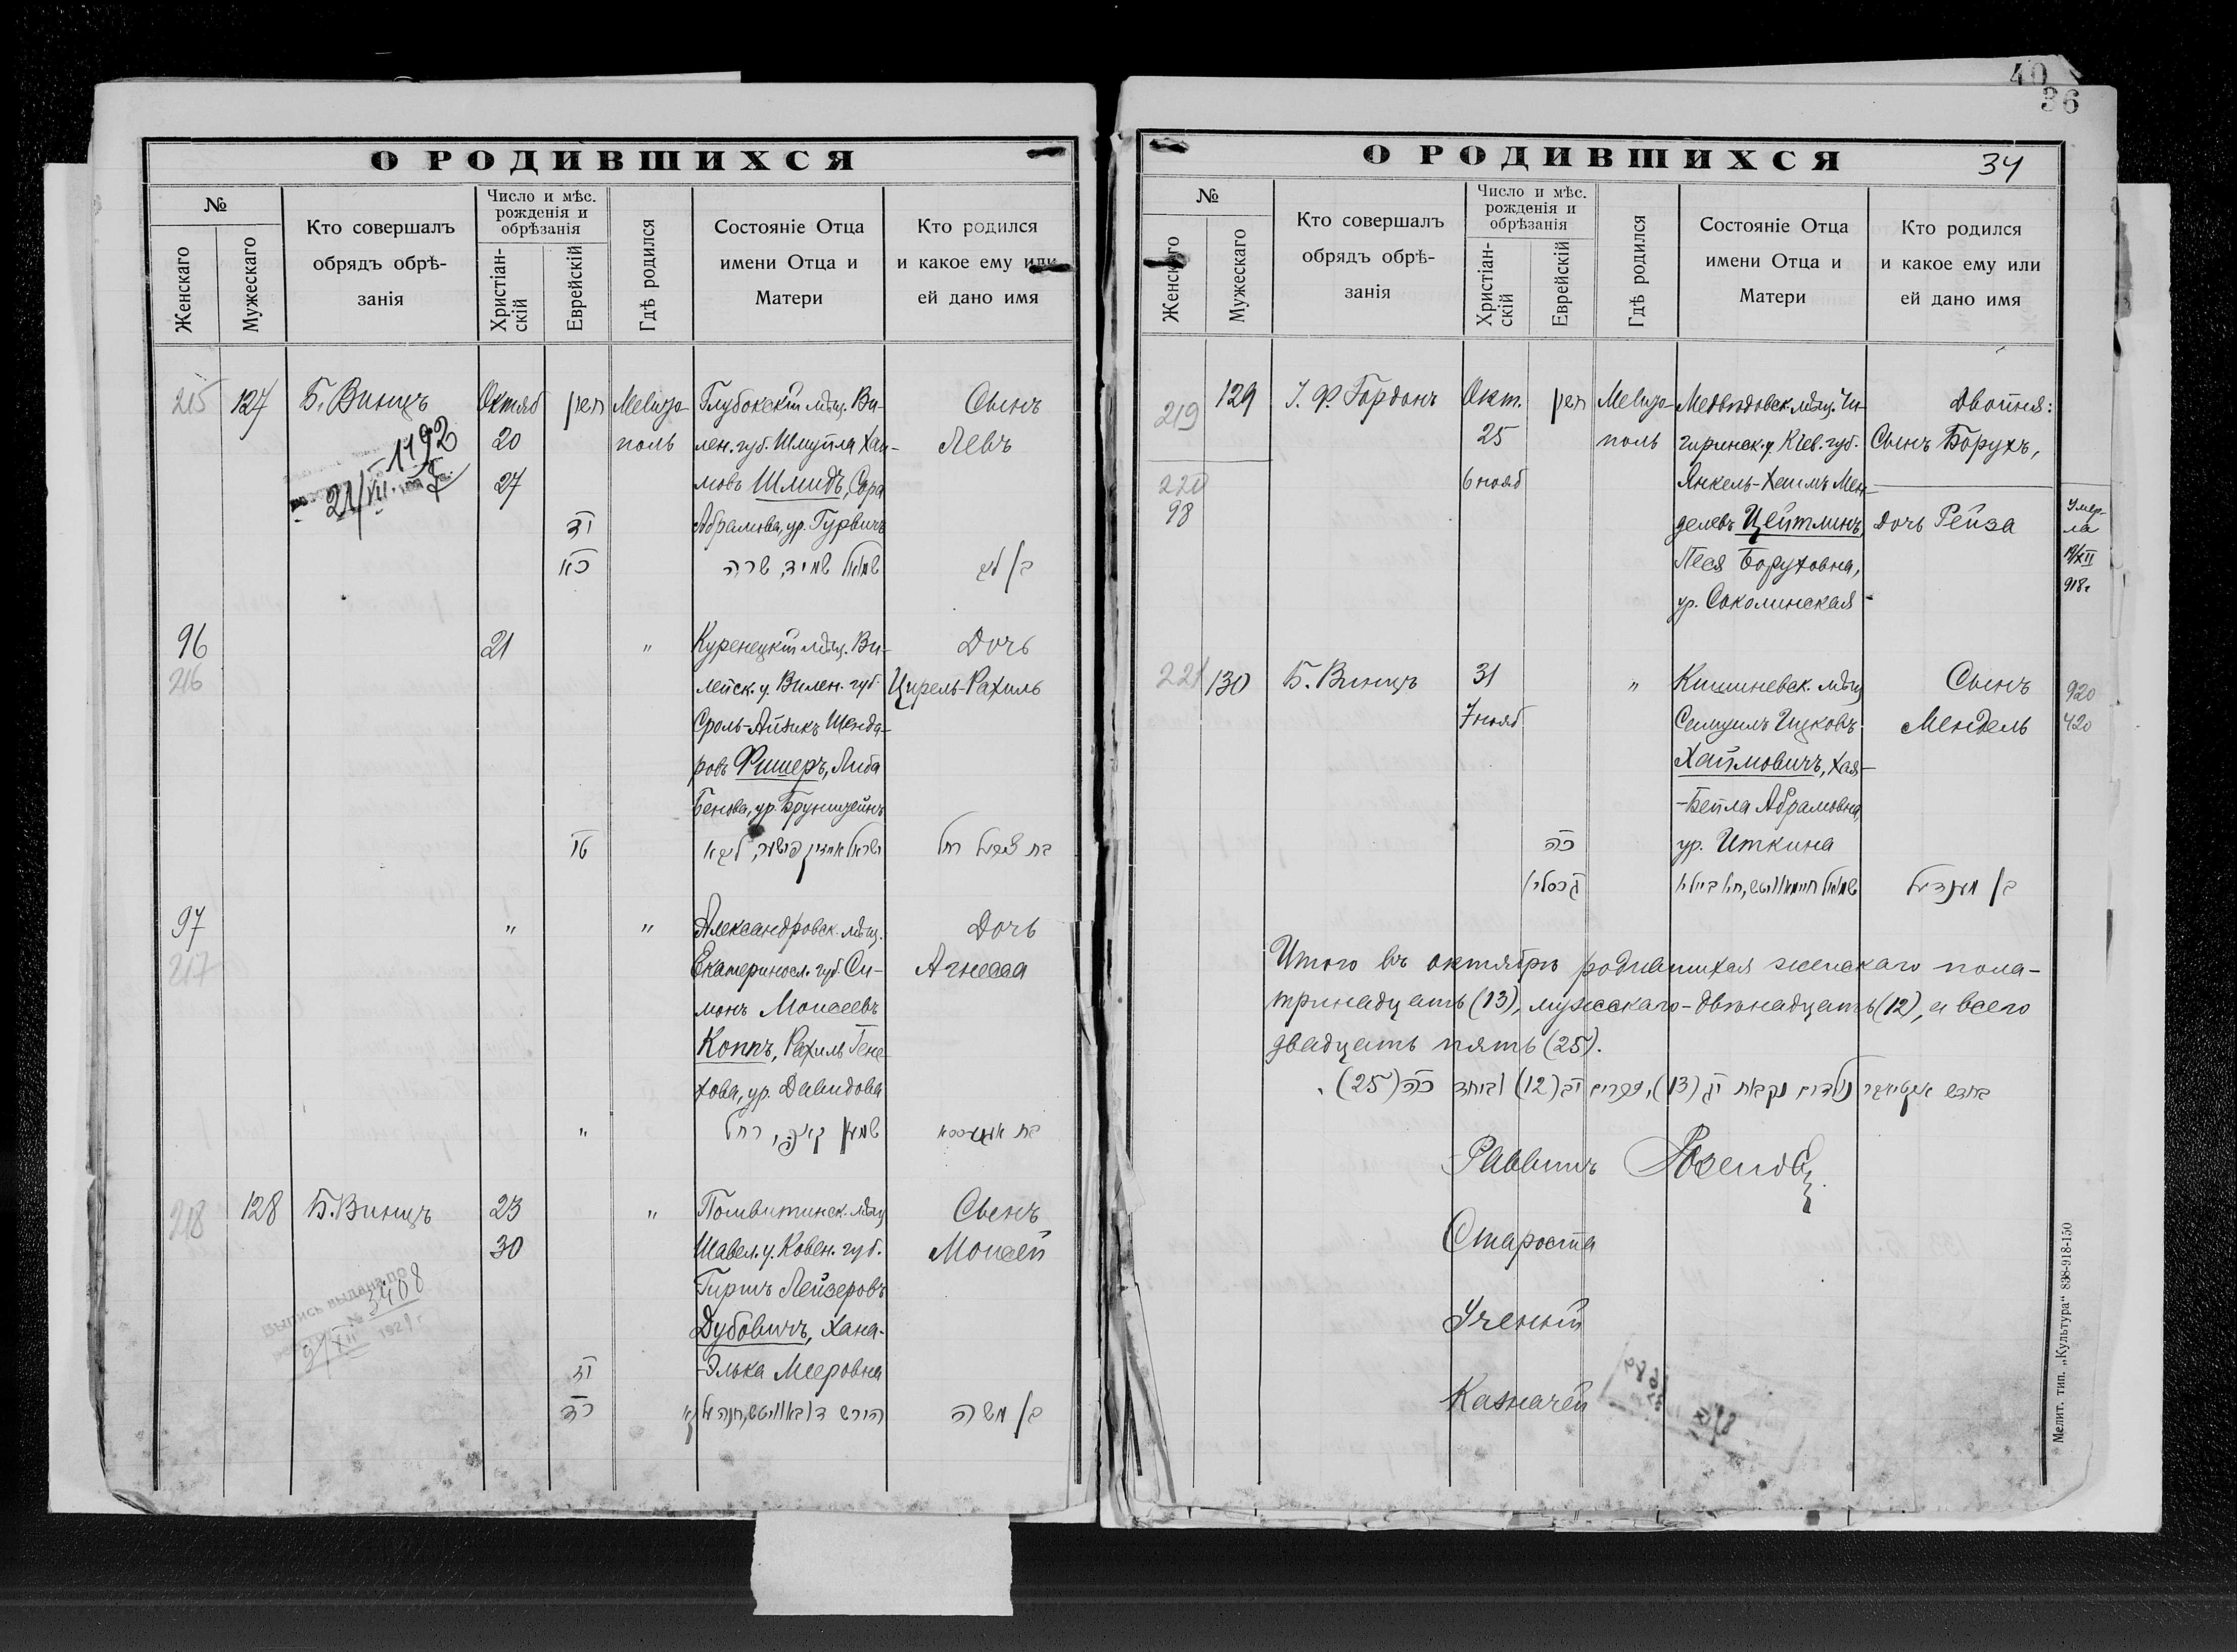 40
36
О РОДИВШИХСЯ
№
Женскаго
Мужескаго
Кто совершалъ
обрядъ обрѣ-
занія
Число и мѣс.
рожденія и
обрѣзанія
Христіан-
скій
Еврейскій
Гдѣ родился
Состояніе Отца
имени Отца и
Матери
Кто родился
и какое ему или
ей дано имя
215
127
Б. Винцъ
Октяб
20
27
חשון
יד
כא
Мелито-
поль
Глубокскій мѣщ. Ви-
лен. губ. Шмуйла Хаи-
мовъ Шмидъ, Сора
Абрамова, ур. Гурвичъ
שמואל שמיד, שרה
Сынъ
Левъ
1192
21/VII
96
216
21
"
Куренецкій мѣщ. Ви-
лейск. у. Вилен. губ.
Сроль-Айзикъ Шенда-
ровъ Фишеръ, Либа
Бенова, ур. Брунштейнъ
טו
Дочь
Цирель-Рахиль
97
217
"
"
Александровск. мѣщ.
Екатериносл. губ. Си-
монъ Моисеевъ
Коппъ, Рахиль Гене-
хова, ур. Давидова
"
Дочь
Агнесса
218
128
Б. Винцъ
23
30
"
Шавел. у. Ковен. губ.
Гиршъ Лейзеровъ
Дубовичъ, Хана-
-Элька Мееровна
כד
Сынъ
Моисей
בן משה
Выпись выдана по
№ 3408
9/XII 1929 г.
О РОДИВШИХСЯ
34
№
Женскаго
Мужескаго
Кто совершалъ
обрядъ обрѣ-
занія
Число и мѣс.
рожденія и
обрѣзанія
Христіан-
скій
Еврейскій
Гдѣ родился
Состояніе Отца
имени Отца и
Матери
Кто родился
и какое ему или
ей дано имя
219
129
І. Ф. Гордонъ
Окт.
25
6 нояб
חשון
Мелито-
поль
Медвѣдовск. мѣщ. Чи-
гиринск. у. Кіев. губ.
Янкель-Хаимъ Мен-
делевъ Цейтлинъ,
Песя Боруховна,
ур. Соколинская
Двойня:
Сынъ Борухъ,
220
98
Дочь Рейза
Умер-
ла
19/XII
918 г
221
130
Б. Винцъ
31
7 нояб
"
Кишиневск. мѣщ
Самуилъ Ицковъ
Хаймовичъ, Хая-
-Бейла Абрамовна,
ур. Иткина
כה
Сынъ
Мендель
בן מענדיל
920
420
Итого въ октябрѣ родившихся женскаго пола-
тринадцать (13), мужескаго-двѣнадцать (12), а всего
двадцать пять (25).
Раввинъ
Староста
Ученый
Казначей
Мелит. тип. „Культура“ 838-918-150